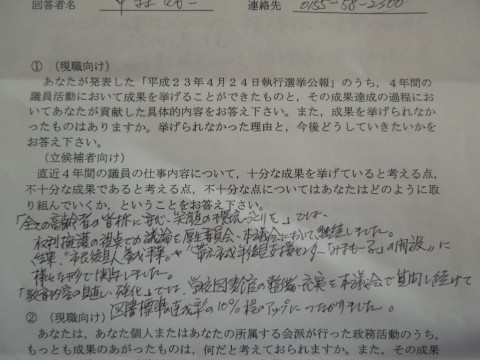 回答者名
連絡先 0155-58-2300
① (現職向け)
あなたが発表した「平成23年4月24日執行選挙公報」のうち、4年間の
議員活動において成果を挙げることができたものと、その成果達成の過程にお
いてあなたが貢献した具体的内容をお答え下さい。また、成果を挙げられなか
ったものはありますか。挙げられなかった理由と、今後どうしていきたいかを
お答え下さい。
(立候補者向け)
直近4年間の議員の仕事内容について、十分な成果を挙げていると考える点、
不十分な成果であると考える点、不十分な点についてはあなたはどのように取
り組んでいくか、ということをお答え下さい。
「全ての高齢者の皆様に安心、笑顔の環境づくりを」では、
権利擁護の推進での議論を厚生委員会、本会議において継続しました。
結果、"市民後見人養成事業"や"帯広市成年後見支援センター「みまもーる」の開設"に
様々な形で
「教育内容の見直し、強化」では、学校図書館の整備・充実を本会議で質問し続けて
図書標準達成率の10%程のアップにつながりました。
② (現職向け)
あなたは、あなた個人またはあなたの所属する会派が行った政務活動のうち、
もっとも成果のあがったものは、何だと考えておられますか。また、その成果